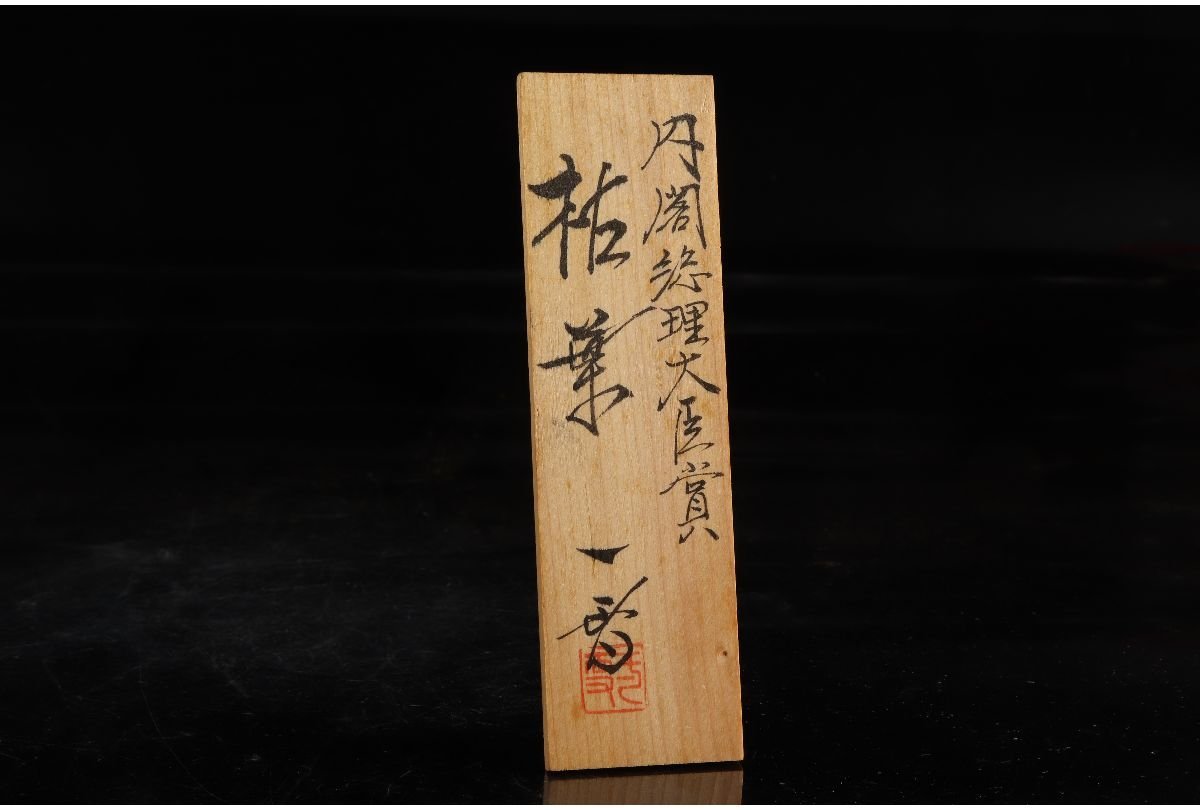 内閣総理大臣賞
枯葉
一